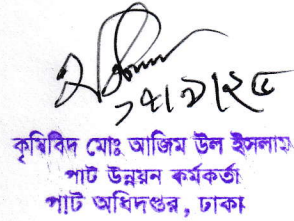 কৃষিবিদ মোঃ আজিম উল ইসলাম
পাট উন্নয়ন কর্মকর্তা
পাট অধিদপ্তর, ঢাকা